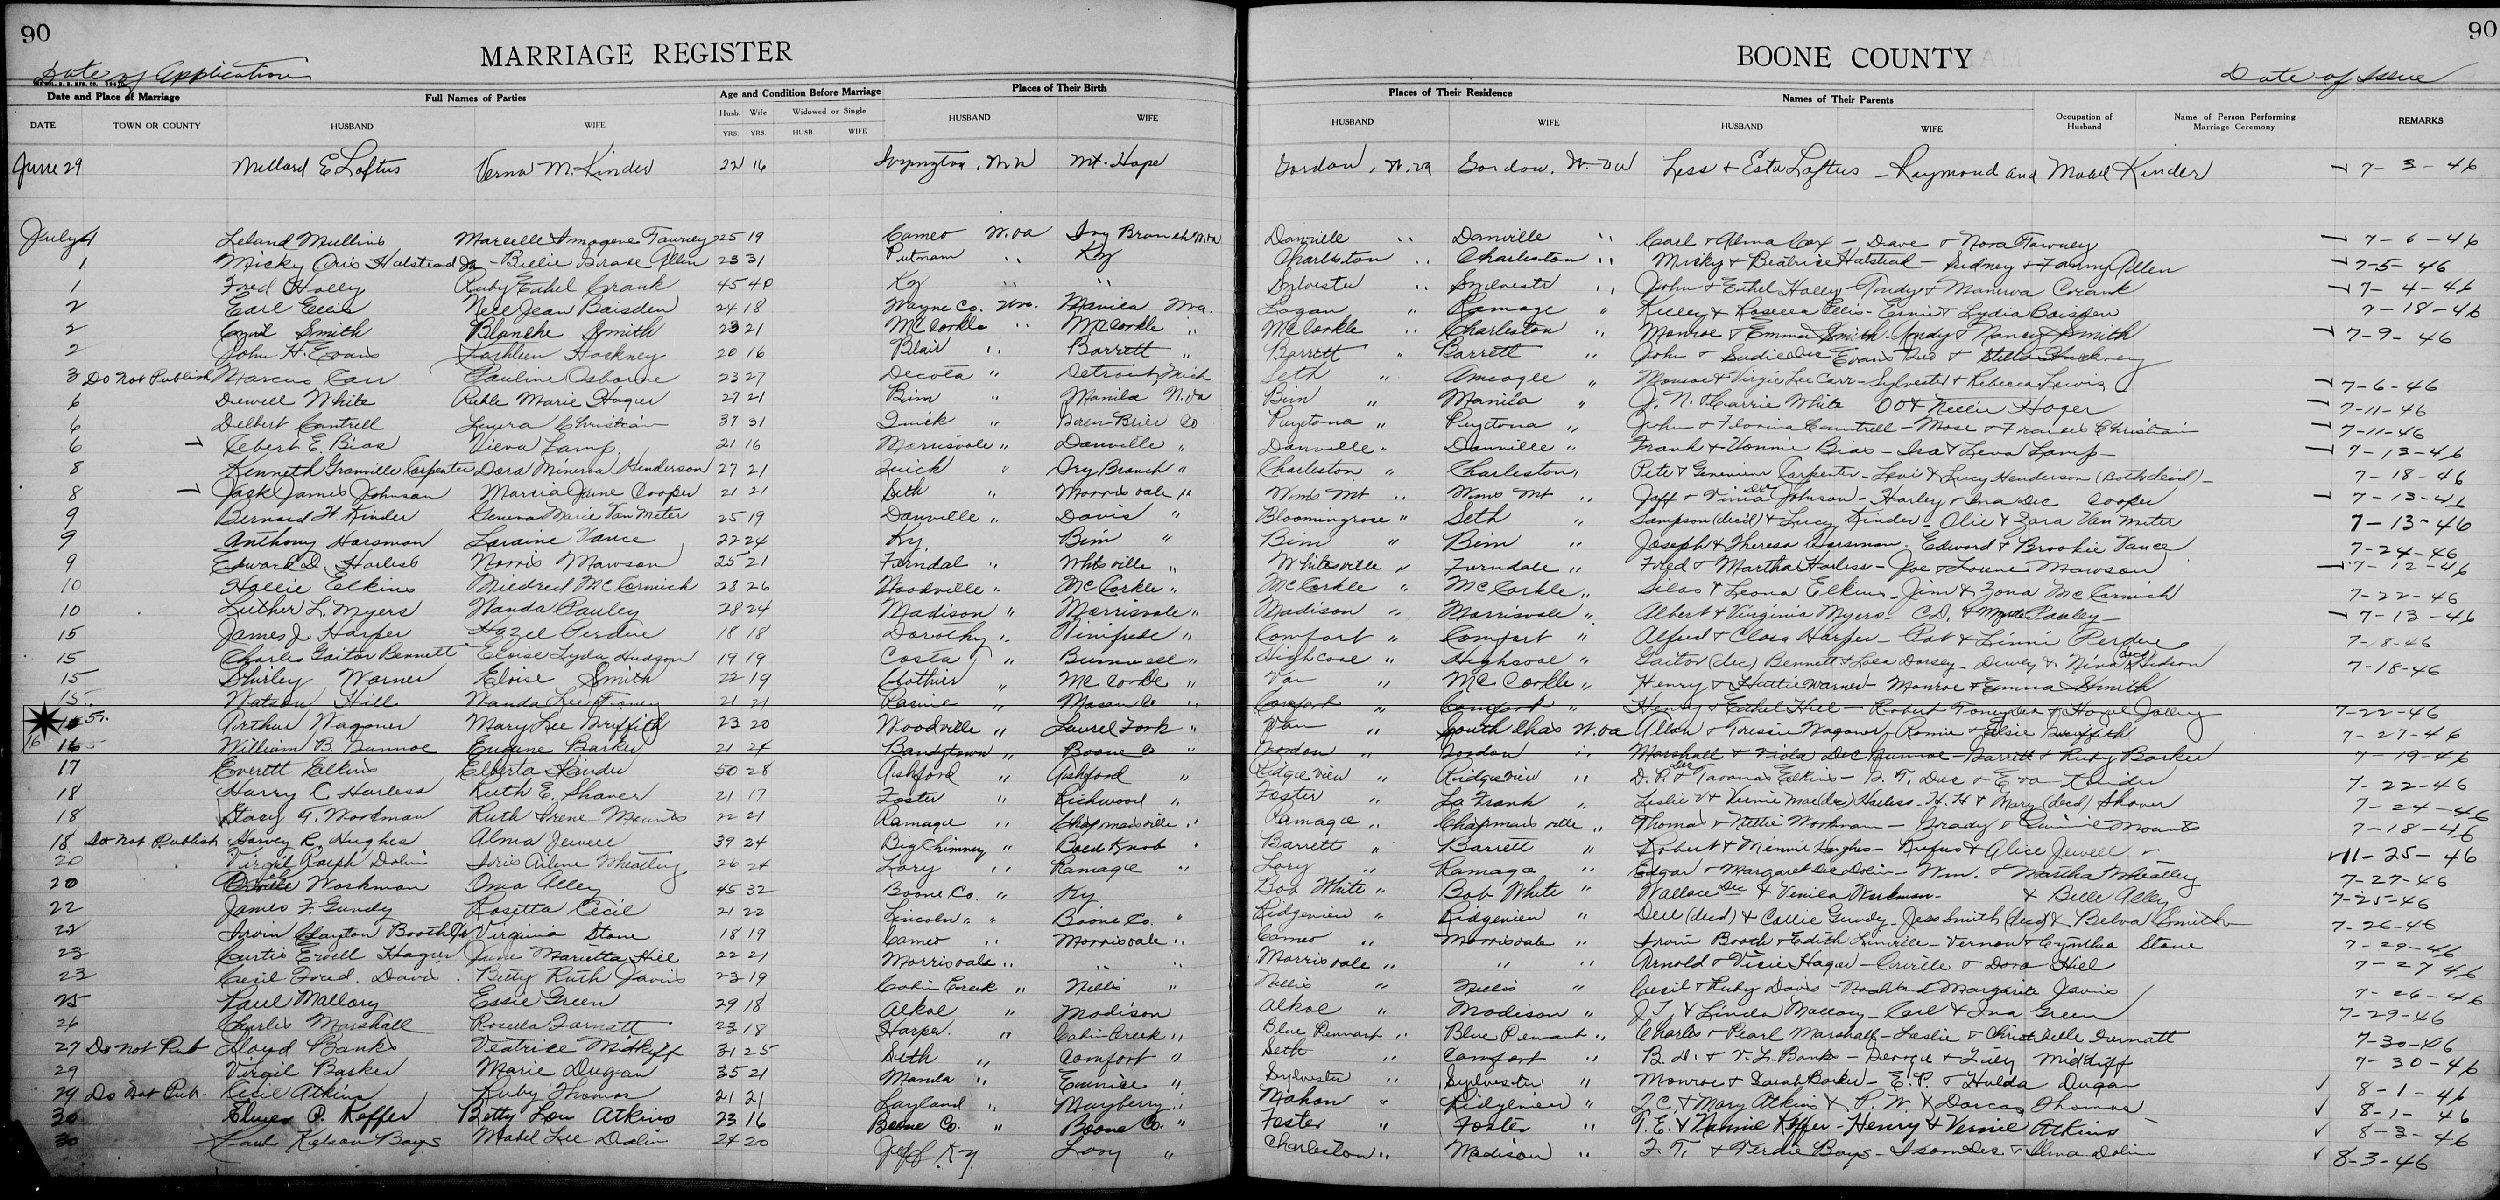 90
MARRIAGE REGISTER
BOONE COUNTY
90
Date of Application
Date of Issue
Date and Place of Marriage Full Names of Parties Age and Condition Before Marriage Places of Their Birth Places of Their Residence Names of Their Parents
DATE TOWN OR COUNTY HUSBAND WIFE Husb. YRS. Wife YRS. Widowed or Single HUSB. WIFE HUSBAND WIFE HUSBAND WIFE HUSBAND WIFE Occupation of Husband Name of Person Performing Marriage Ceremony REMARKS
June 29 Millard E Loftus Verna M. Kinder 22 16 Mt. Hope Gordon, W. Va Gordon, W. Va Less + Esta Loftus - Raymond and Mabel Kinder 7-3-46
July 1 Leland Mullins Marcelle Imogene Tawney 25 19 Cameo W. Va Ivy Branch W. Va Danville " Danville " Carl + Alma Cox - Dave + Nora Tawney 7-6-46
1 Micky Oris Halstead Jr - Billie Allen 23 31 Putnam " Ky Charleston " Charleston " Micky + Beatrice Halstead - Sidney + Fanny Allen 7-5-46
1 Fred Holley Ruby Ethel Crank 45 40 Ky " Sylvester " Sylvester " John + Ethel Holley - Andy + Manerva Crank 7-4-46
2 Earl Ellis Nell Jean Baisden 24 18 Wayne Co. Manila Logan " Ramage " Kelley + Rosecca Ellis - Ernie + Lydia Baisden 7-18-46
2 Smith Blanche Smith 23 21 McCorkle " McCorkle " McCorkle " Charleston " Monroe + Emma Smith - Andy + Nancy Smith 7-9-46
2 John H. Evans Kathleen Hackney 20 16 Blair " Barrett " Barrett " Barrett " John + Sadie Evans + Stella Hackney
3 Do Not Publish Marcus Carr Pauline Osborne 23 27 Decota " Detroit, Mich Seth " Ameagle " Monroe + Virgie Lee Carr - Sylvester + Rebecca Lewis 7-6-46
6 Dewell White Marie Hager 27 21 Bim " Manila W. Va Bim " Manila " J. N. + Carrie White OO + Nellie Hager 7-11-46
6 Delbert Cantrell Christian 37 31 Quick " Peytona " Peytona " John + Cantrell - Mose + Christian 7-11-46
6 Elbert E. Bias Lamp 21 16 Morrisvale " Danville " Danville " Danville " Frank + Bias - Isa + Leva Lamp - 7-13-46
8 Kenneth Granville Carpenter Dora Minerva Henderson 27 21 Quick " Dry Branch " Charleston " Charleston, Pete + Carpenter - Levi + Lucy Henderson (Both dead) - 7-18-46
8 Jack James Johnson Marcia June Cooper 21 21 Seth " Morrisvale " Wms Mt " Wms Mt " Jeff + Johnson - Harley + Ina Dec Cooper 7-13-46
9 Bernard H. Kinder Geneva Marie Van Meter 25 19 Danville " Davis " Bloomingrose " Seth " Sampson (dec'd) + Lucy Kinder - Olie + Zora Van Meter 7-13-46
9 Anthony Harsman Loraine Vance 22 24 Ky. Bim " Bim " Bim " Joseph + Theresa Harsman - Edward + Brookie Vance 7-24-46
9 Edward D. Harless Norris Mawson 25 21 Ferndal " Whitesville " Whitesville " Ferndale " Fred + Martha Harless - Joe + Mawson 7-12-46
10 Hallie Elkins Mildred McCormick 28 26 Woodville " McCorkle " McCorkle " McCorkle " Silas + Leona Elkins - Jim + Zona McCormick 7-22-46
10 Luther L. Myers Wanda Pauley 28 24 Madison " Morrisvale " Madison " Morrisvale " Albert + Virginia Myers - C.D. + Pauley - 7-13-46
15 James J. Harper Hazel Perdue 18 18 Dorothy " Winifrede " Comfort " Comfort " Alfred + Clara Harper - Pat + Linnie Perdue 7-18-46
15 Charles Gaitor Bennett Eloise Lyda Hudson 19 19 Costa " Highcoal " Highcoal " Gaitor (dec) Bennett + Dorsey - Dewey + Nina (dec'd) Hudson 7-18-46
15 Shirley Warner Eloise Smith 22 19 Clothier " McCorkle " Van " McCorkle " Henry + Hattie Warner - Monroe + Emma Smith
15 Watson Hill Wanda Lee 21 21 Racine " Mason Co " Comfort " Comfort " Henry + Ethel Hill - Robert + Hazel 7-22-46
15 Arthur Wagoner Mary Lee Griffith 23 20 Woodville " Laurel Fork " Van " South Chas W. Va Allen + Wagoner - Romie + Elsie Griffith 7-27-46
16 William B. Nunnoe Eugene Barker 21 24 Bandytown " Boone Co " Marshall + Viola Dec Nunnoe - Garrett + Ruby Barker 7-19-46
17 Everett Elkins Elberta Kinder 50 28 Ashford " Ashford " Ridgeview " Ridgeview " Elkins - Dec + Eva Kinder 7-22-46
18 Harry C. Harless Ruth E. Shaver 21 17 Foster " Richwood " Foster " La Frank " Leslie V + Mae (dec) Harless - H. H + Mary (decd) Shaver 7-24-46
18 Stacy G. Workman Ruth Irene Mounts 22 21 Ramage " Chapmansville " Ramage " Chapmansville " Thomas + Nellie Workman - Grady + Mounts 7-18-46
18 Do Not Publish Harvey R. Hughes Alma Jewell 39 24 Big Chimney " Bald Knob " Barrett " Barrett " Robert + Minnie Hughes - Rufus + Alice Jewell 11-25-46
20 Virgil Ralph Dolin Iris Arlene Wheatley 26 24 Lory " Ramage " Lory " Ramage " Edgar + Margaret Dec Dolin - Wm. + Martha Wheatley 7-27-46
20 Orville Workman Oma Alley 45 32 Boone Co. " Ky Bob White " Bob White " Wallace Dec + Workman - + Belle Alley 7-25-46
22 James F. Gundy Rosetta Cecil 21 22 Lincoln " " Boone Co. " Ridgeview " Ridgeview " Dell (decd) + Callie Gundy - Jess Smith (decd) + Belva Smith 7-26-46
22 Irvin Clayton Booth Jr Virginia Stone 18 19 Cameo " Morrisvale " Cameo " Morrisvale " Irvin Booth + Edith Linville - Vernon + Cynthia Stone 7-29-46
23 Curtis Ewell Hager June Marietta Hill 22 21 Morrisvale " " " Morrisvale " " " Arnold + Visie Hager - Orville + Dora Hill 7-27-46
23 Cecil Fred. Davis. Betty Ruth Javins 23 19 Cabin Creek " Nellis " Nellis " Nellis " Cecil + Ruby Davis - Noah + Margarite Javins 7-26-46
25 Paul Mallory Essie Green 29 18 Alkol " Madison Alkol " Madison " J. T. + Linda Mallory - Carl + Ina Green 7-29-46
26 Charles Marshall Rosella 23 18 Harper. " Cabin Creek " Blue Pennant " Blue Pennant " Charles + Pearl Marshall - Leslie + 7-30-46
27 Do Not Pub Lloyd Banks Veatrice Midkiff 31 25 Seth " Comfort " Seth " Comfort " B. D. + V. L. Banks - George + Midkiff 7-30-46
29 Virgil Barker Marie Dugan 35 21 Manila " Eunice " Sylvester " Sylvester " Monroe + Sarah Barker - E. P. + Hulda Dugan 8-1-46
29 Do Not Pub. Cecil Atkins Ruby Thomas 21 21 Layland " Mayberry " Mahon " Ridgeview " T. C. + Mary Atkins + P. W. + Dorcas Thomas 8-1-46
30 Elmer P. Keffer Betty Lou Atkins 23 16 Boone Co. " Boone Co. " Foster " Foster " T. E. + Nannie Keffer - Henry + Vernie Atkins 8-3-46
30 Paul Bays Mabel Lee Dolin 24 20 Jeff Ky Lory " Charleston " Madison " F. T. + Verdie Bays - Isom Dec + Alma Dolin 8-3-46